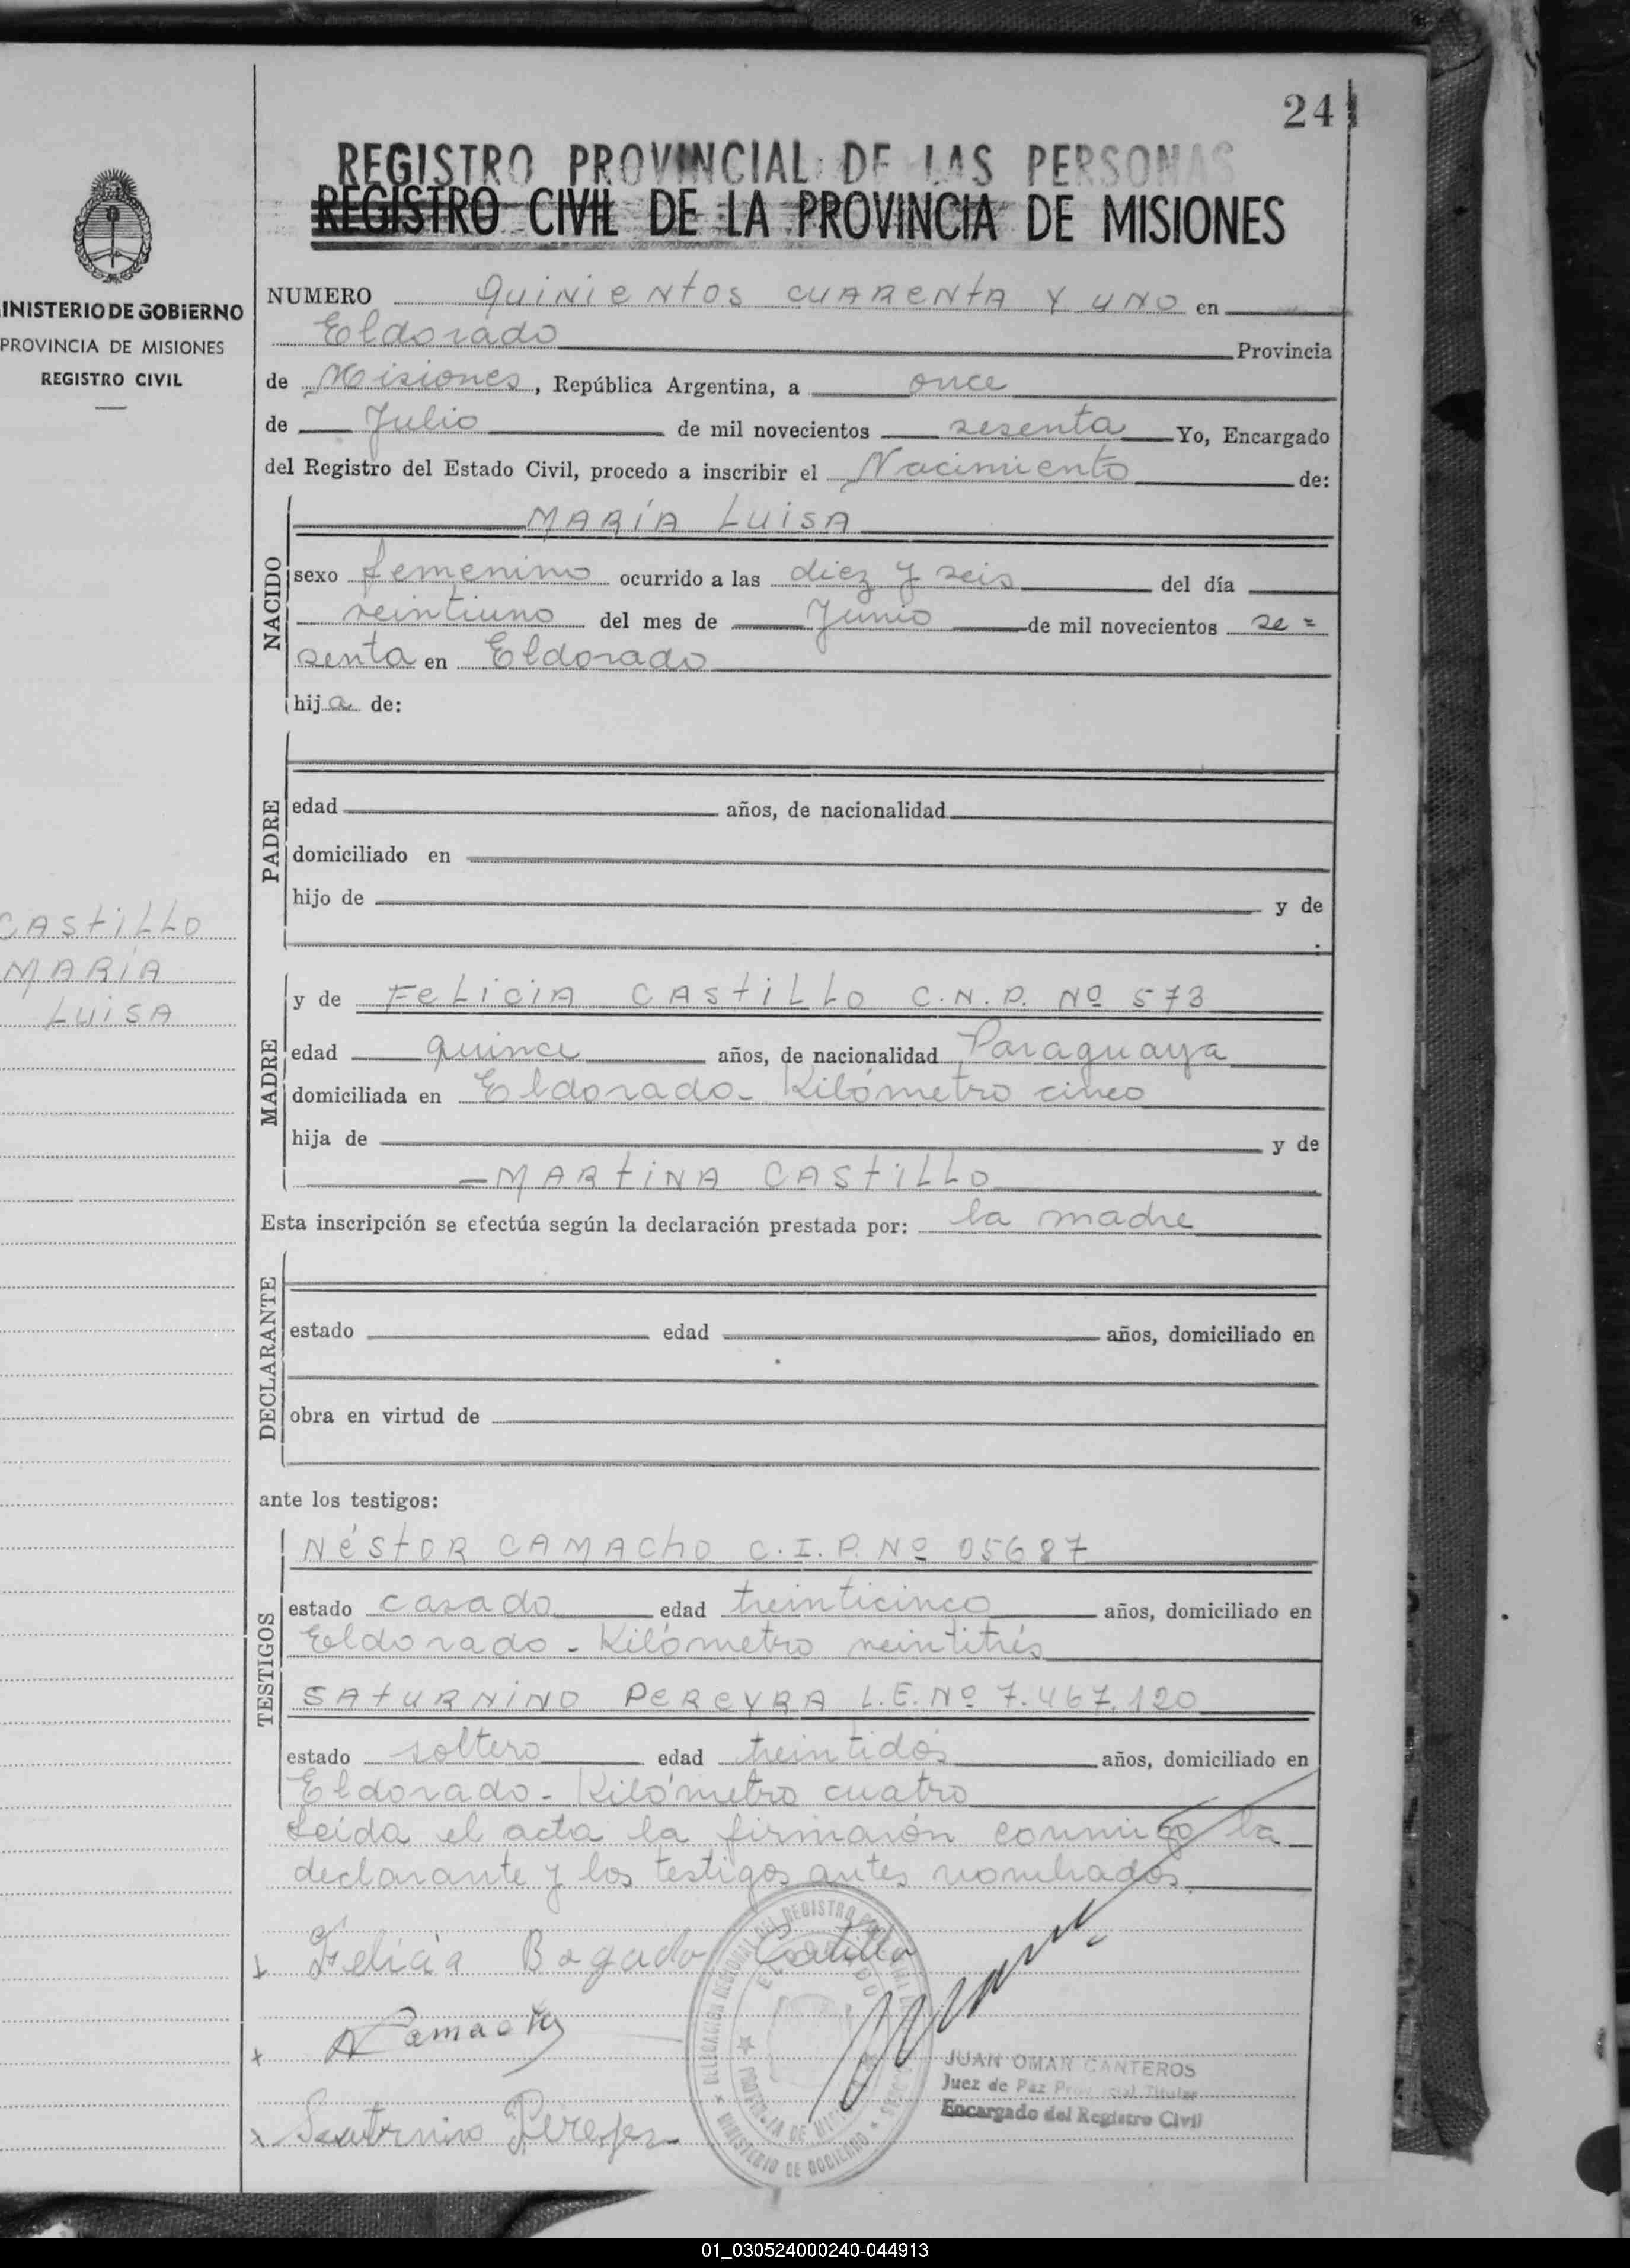 241
REGISTRO PROVINCIAL DE LAS PERSONAS
REGISTRO CIVIL DE LA PROVINCIA DE MISIONES
INISTERIO DE GOBIERNO
PROVINCIA DE MISIONES
REGISTRO CIVIL
CASTILLO
MARÍA
LUISA
NUMERO QUINIENTOS CUARENTA Y UNO en
Eldorado Provincia
de Misiones, República Argentina, a once
de Julio de mil novecientos sesenta Yo, Encargado
del Registro del Estado Civil, procedo a inscribir el Nacimiento de:
NACIDO
MARÍA LUISA
sexo femenino ocurrido a las diez y seis del día
veintiuno del mes de Junio de mil novecientos se =
senta en Eldorado
hija de:
PADRE
edad años, de nacionalidad
domiciliado en
hijo de y de
MADRE
y de FELICIA CASTILLO C.N.P. Nº 573
edad quince años, de nacionalidad Paraguaya
domiciliada en Eldorado - Kilómetro cinco
hija de y de
— MARTINA CASTILLO
Esta inscripción se efectúa según la declaración prestada por: la madre
DECLARANTE
estado edad años, domiciliado en
obra en virtud de
ante los testigos:
TESTIGOS
NÉSTOR CAMACHO C.I.P. Nº 05687
estado casado edad treinticinco años, domiciliado en
Eldorado - Kilómetro veintitrés
SATURNINO PEREYRA L.E. Nº 7.467.120
estado soltero edad treintidós años, domiciliado en
Eldorado - Kilómetro cuatro
Leída el acta la firmarón conmigo la
declarante y los testigos antes nombrados.
Felicia Bogado Castillo
N Camacho
JUAN OMAR CANTEROS
Juez de Paz Provincial Titular
Encargado del Registro Civil
Saturnino Pereyra
DELEGACION REGIONAL DEL REGISTRO
PROVINCIA DE MISIONES
MINISTERIO DE GOBIERNO
01_030524000240-044913